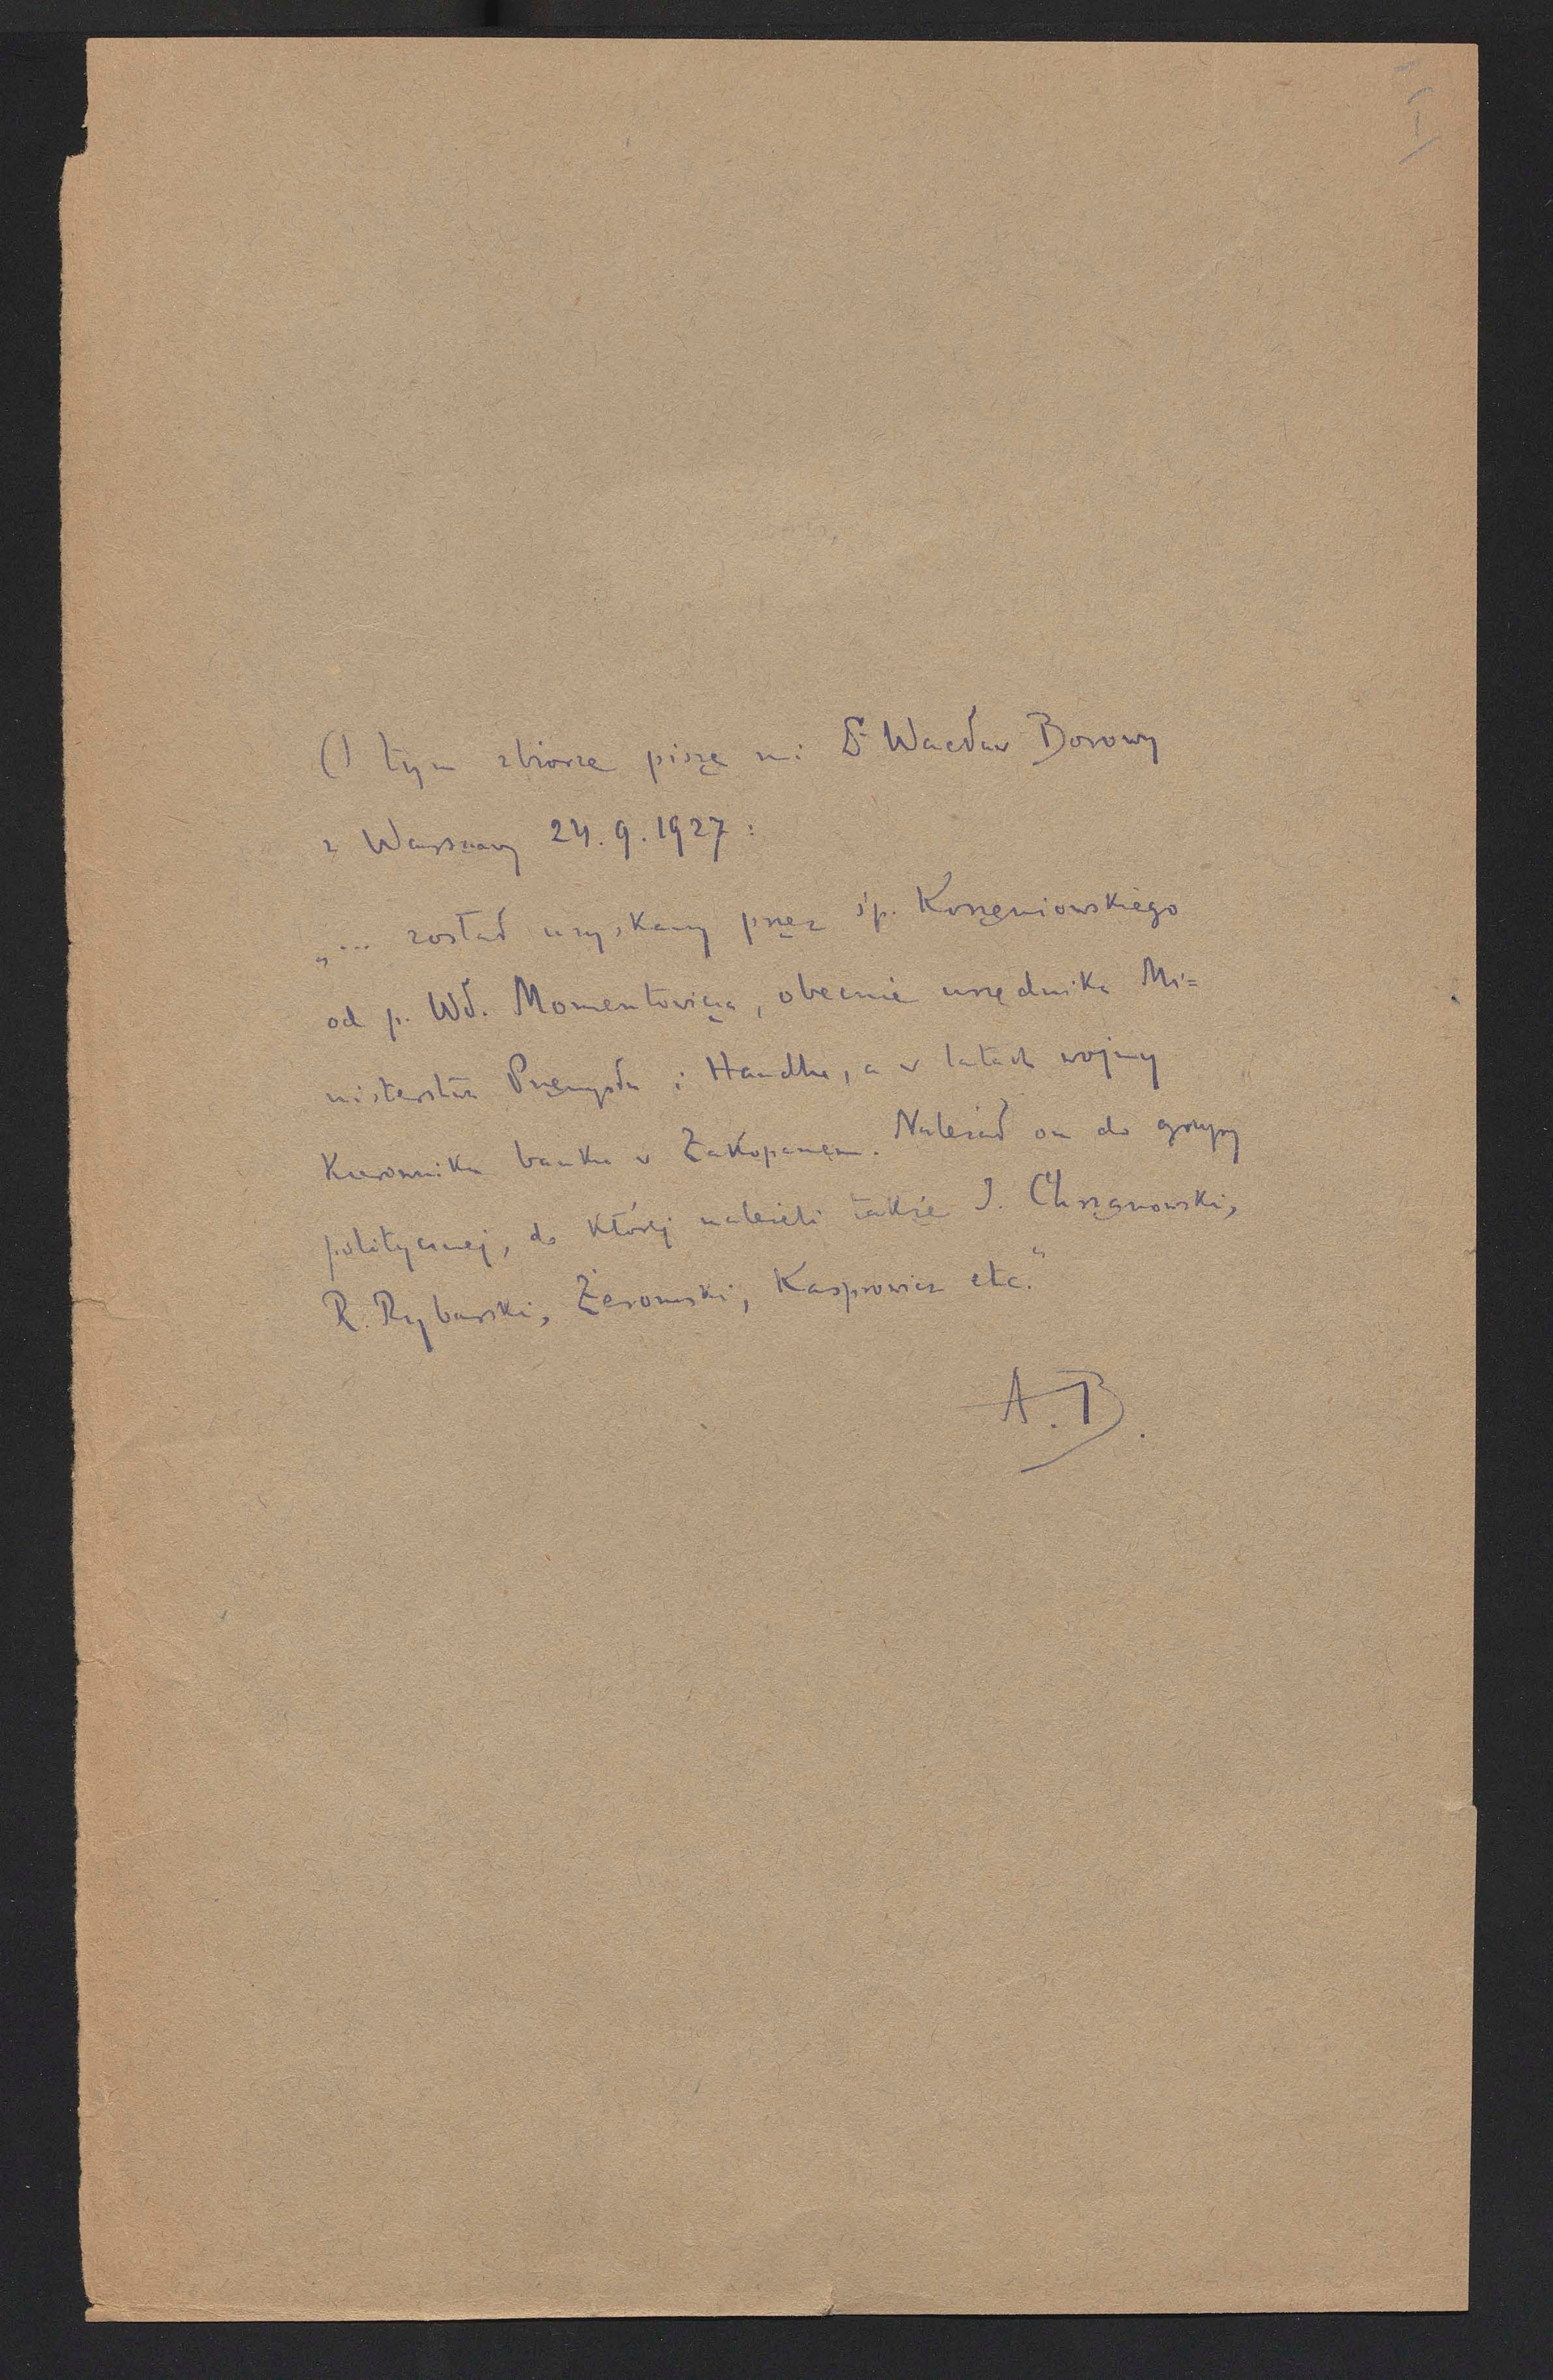 I
O tym zbiorze pisze mi Dr Wacław Borowy
z Warszawy 24.9.1927:
„... został uzyskany przez śp. Korzeniowskiego
od p. Wł. Momentowicza, obecnie urzędnika Mi=
nisterstwa Przemysłu i Handlu, a w latach wojny
Kierownika banku w Zakopanem. Należał on do grupy
politycznej, do której należeli także I. Chrzanowski,
R. Rybarski, Żeromski, Kasprowicz etc."
A.B.